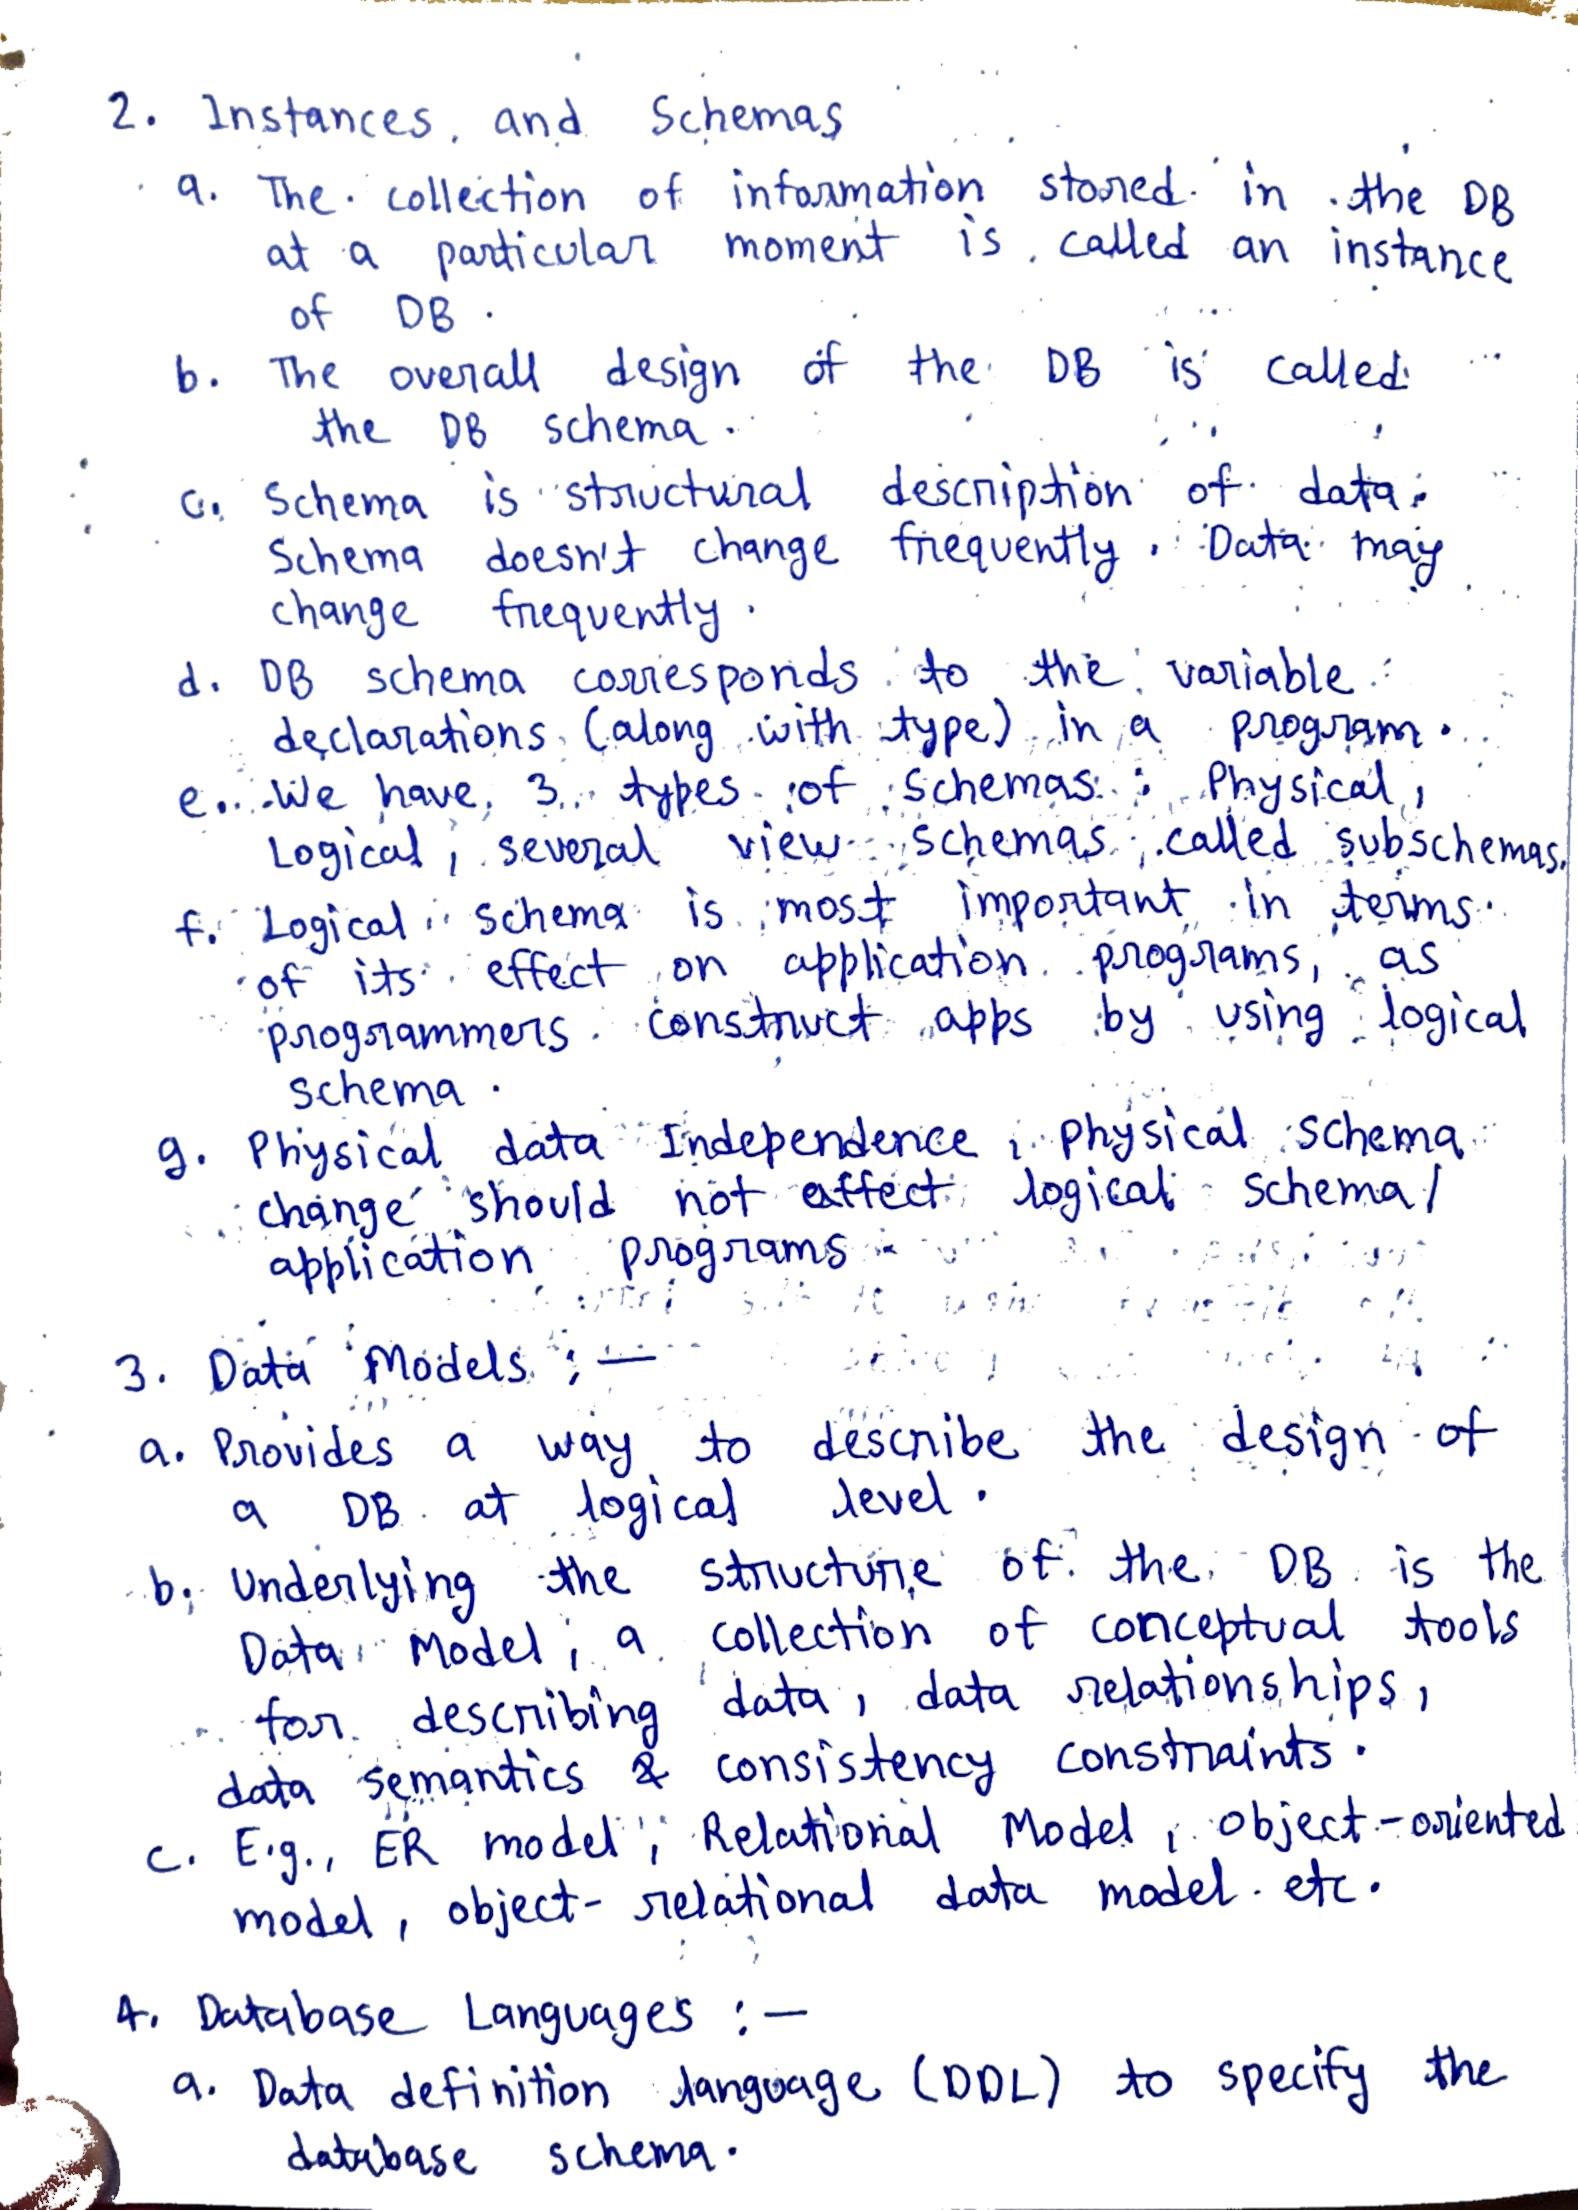 2. Instances and Schemas
a. The collection of information stored in the DB
at a particular moment is called an instance
of DB.
b. The overall design of the DB is called
the DB schema.
c. Schema is structural description of data.
Schema doesn't change frequently. Data may
change frequently.
d. DB schema corresponds to the variable
declarations (along with type) in a program.
e. We have 3 types of schemas : Physical,
Logical, several view schemas called subschemas.
f. Logical schema is most important in terms
of its effect on application programs, as
programmers construct apps by using logical
schema.
g. Physical data Independence, physical schema
change should not affect logical schema/
application programs
3. Data Models :—
a. Provides a way to describe the design of
a DB at logical level.
b. Underlying the structure of the DB is the
Data Model; a collection of conceptual tools
for describing data, data relationships,
data semantics & consistency constraints.
c. E.g., ER model, Relational Model, object-oriented
model, object-relational data model etc.
4. Database Languages :—
a. Data definition language (DDL) to specify the
database schema.